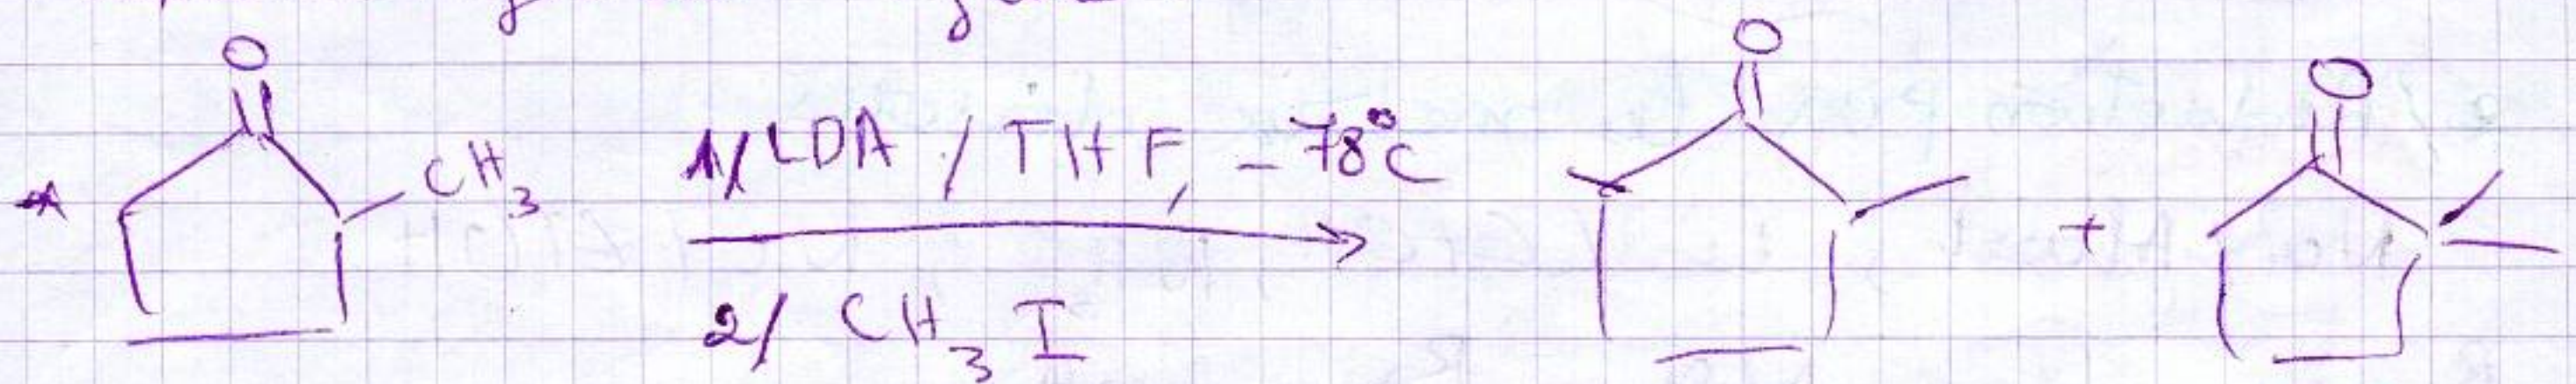 O
O
O
CH3
1/ LDA / THF, -78°C
+
2/ CH3 I